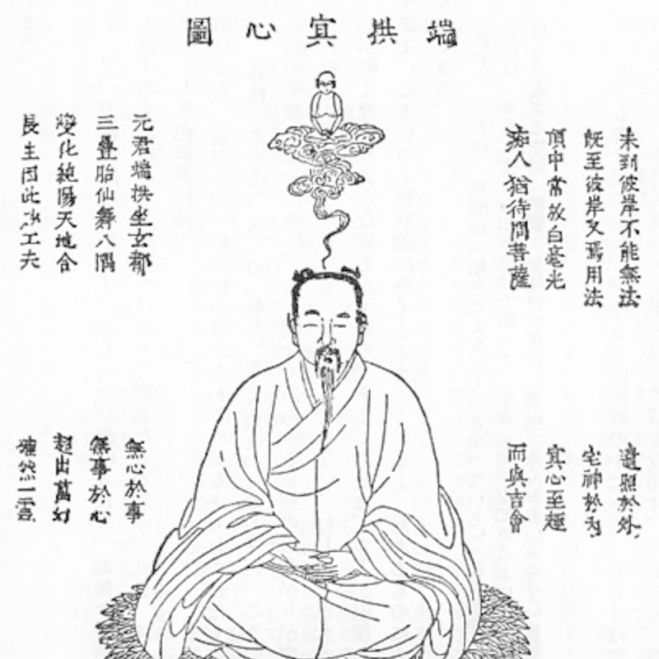 端拱㝠心圖
未到彼岸不能無法
既至彼岸又焉用法
頂中常放白毫光
痴人猶待問菩薩
遺照於外
宅神於內
㝠心至趣
而與吉會
元君端拱坐玄都
三疊胎仙舞八隅
變化純陽天地合
長生因此工夫
無心於事
無事於心
超出萬幻
確然一靈